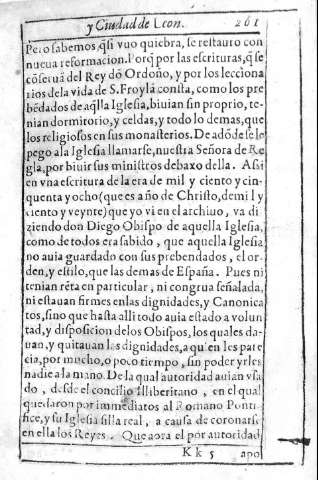 y Ciudad de Leon. 261
Pero sabemos, q̃ si vuo quiebra, se restauro con
nueua reformacion. Porq̃ por las escrituras, q̃ se
cõseruã del Rey dõ Ordoño, y por los lecciona
rios dela vida de S. Froylã consta, como los pre
bẽdados de aq̃lla Iglesia, biuian sin proprio, te-
nian dormitorio, y celdas, y todo lo demas, que
los religiosos en sus monasterios. De adõde se le
pego ala Iglesia llamarse, nuestra Señora de Re
gla, por biuir sus ministros debaxo della. Assi
en vna escritura de la era de mil y ciento y cin-
quenta y ocho (que es año de Christo, de mil y
ciento y veynte) que yo vi en el archiuo, va di
ziendo don Diego Obispo de aquella Iglesia,
como de todos era sabido, que aquella Iglesia
no auia guardado con sus prebendados, el or-
den, y estilo, que las demas de España. Pues ni
tenian rẽta en particular, ni congrua señalada,
ni estauan firmes enlas dignidades, y Canonica
tos, sino que hasta alli todo auia estado a volun
tad, y disposicion delos Obispos, los quales da-
uan, y quitauan las dignidades, a quien les pare
cia, por mucho, o poco tiempo, sin poder yrles
nadie a la mano. De la qual autoridad auian vsa
do, desde el concilio Illiberitano, en el qual
quedaron por immediatos al Romano Ponti-
fice, y su Iglesia silla real, a causa de coronarse
en ella los Reyes. Que aora el por autoridad
Kk 5 apo